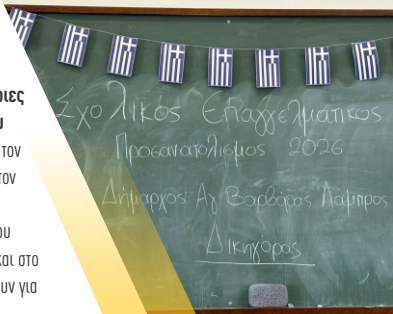 ριες
τον
τον
ου
και στο
υν για
Σχολικός Επαγγελματικος
Προσανατολισμος 2026
Δήμαρχος Αγ Βαρβάρας Λάμπρος
Δικηγόρος